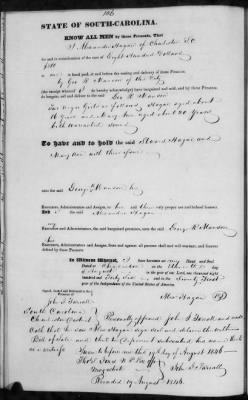 106
STATE OF SOUTH-CAROLINA.
KNOW ALL MEN by these Presents, That
I Alexander Hagan of Charleston So Ca
for and in consideration of the sum of Eight Hundred Dollars
to me in hand paid, at and before the sealing and delivery of these Presents,
by Geo R Manson of the City
the receipt whereof I do hereby acknowledge have bargained and sold, and by these Presents
do bargain, sell and deliver to the said Geo R Manson
Two negro girls as follows Hagar aged about
16 years and Mary Ann aged about 20 Years
both warranted sound
To have and to hold the said Hagar and
Mary Ann with their
unto the said George R Manson his
Executors, Administrators and Assigns, to his and their only proper use and behoof forever.
And I the said Alexander Hagan
my Executors and Administrators, the said bargained premises, unto the said George R Manson
his
Executors, Administrators and Assigns, from and against all persons shall and will warrant, and forever
defend by these Presents.
In Witness Whereof, I have hereunto set my Hand and Seal
Dated at Charleston on the
day of August in the year of our Lord, one thousand eight
hundred and Forty Six and in the Seventy First
year of the Independence of the United States of America.
Signed, Sealed and Delivered in the
Presence of
John S Farrell
Alex Hagan
South Carolina
Charleston District Personally appeared John S Farrell and made
Oath that he saw Alex Hagan sign seal and deliver the within
Bill of Sale and that he Deponent subscribed his name thereto
as a witness Sworn to before me the 19 day of August 1846
Magistrate John S Farrell
Recorded 19 August 1846.